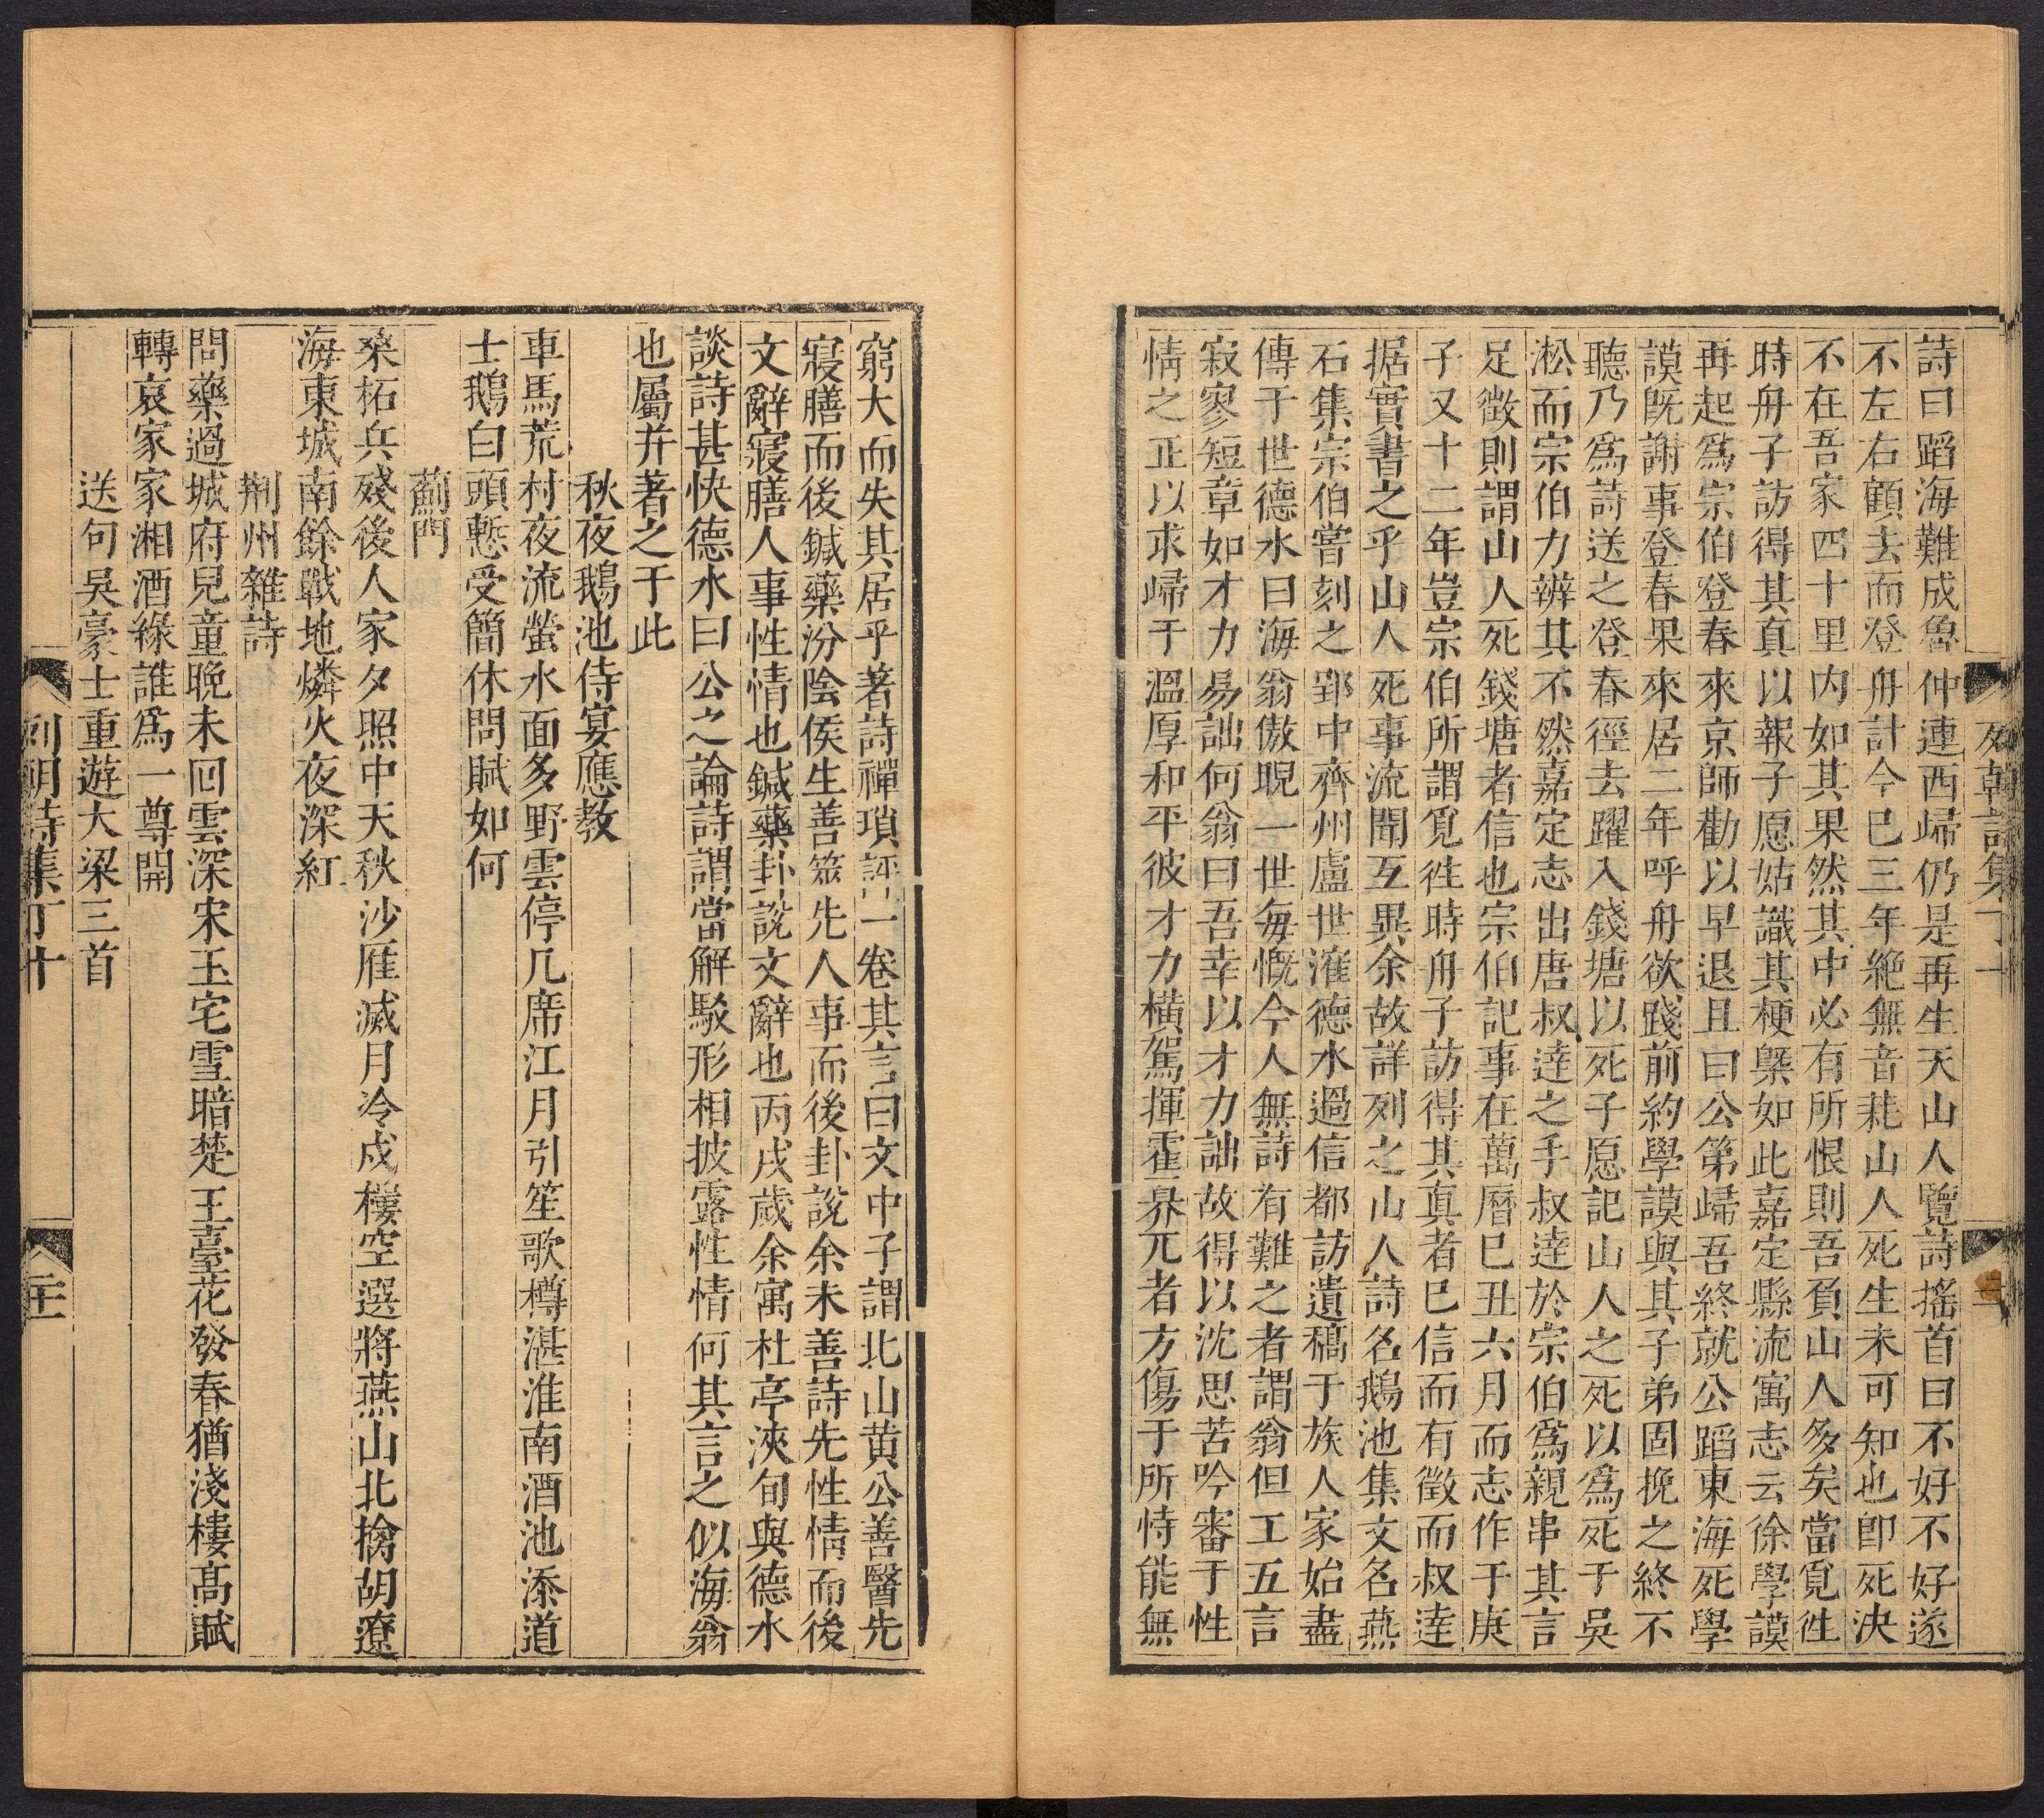 詩曰蹈海難成魯仲連西歸仍是再生天山人覽詩搖首曰不好不好遂
不左右顧去而登舟計今已三年絶無音耗山人死生未可知也卽死決
不在吾家四十里内如其果然其中必有所恨則吾負山人多矣當覓徃
時舟子訪得其真以報子愿姑識其梗槩如此嘉定縣流寓志云徐學謨
再起爲宗伯登春來京師勸以早退且曰公第歸吾終就公蹈東海死學
謨旣謝事登春果來居二年呼舟欲踐前約學謨與其子弟固挽之終不
聽乃爲詩送之登春徑去躍入錢塘以死子愿記山人之死以爲死于吳
淞而宗伯力辨其不然嘉定志出唐叔達之手叔達於宗伯爲親串其言
足徴則謂山人死錢塘者信也宗伯記事在萬曆巳丑六月而志作于庚
子又十二年豈宗伯所謂覓徃時舟子訪得其真者巳信而有徴而叔達
据實書之乎山人死事流聞互異余故詳列之山人詩名鵝池集文名燕
石集宗伯嘗刻之郢中齊州盧世㴶德水過信都訪遺稿于族人家始盡
傳于世德水曰海翁傲睨一世每慨今人無詩有難之者謂翁但工五言
寂寥短章如才力易詘何翁曰吾幸以才力詘故得以沈思苦吟審于性
情之正以求歸于溫厚和平彼才力橫駕揮霍界兀者方傷于所恃能無
列朝詩集丁十
窮大而失其居乎著詩禪瑣評一卷其言曰文中子謂北山黄公善醫先
寢膳而後鍼藥汾陰侯生善筮先人事而後卦說余未善詩先性情而後
文辭寢膳人事性情也鍼藥卦說文辭也丙戌歲余寓杜亭浹旬與德水
談詩甚快德水曰公之論詩謂當解駁形相披露性情何其言之似海翁
也屬并著之于此
秋夜鵝池侍宴應教
車馬荒村夜流螢水面多野雲停几席江月引笙歌樽湛淮南酒池添道
士鵝白頭慙受簡休問賦如何
薊門
桒柘兵殘後人家夕照中天秋沙雁滅月冷戍樓空選將燕山北擒胡遼
海東城南餘戰地燐火夜深紅
荆州雜詩
問藥過城府兒童晚未囘雲深宋玉宅雪暗楚王臺花發春猶淺樓髙賦
轉哀家家湘酒綠誰爲一尊開
送句吳豪士重遊大梁三首
列朝詩集丁十